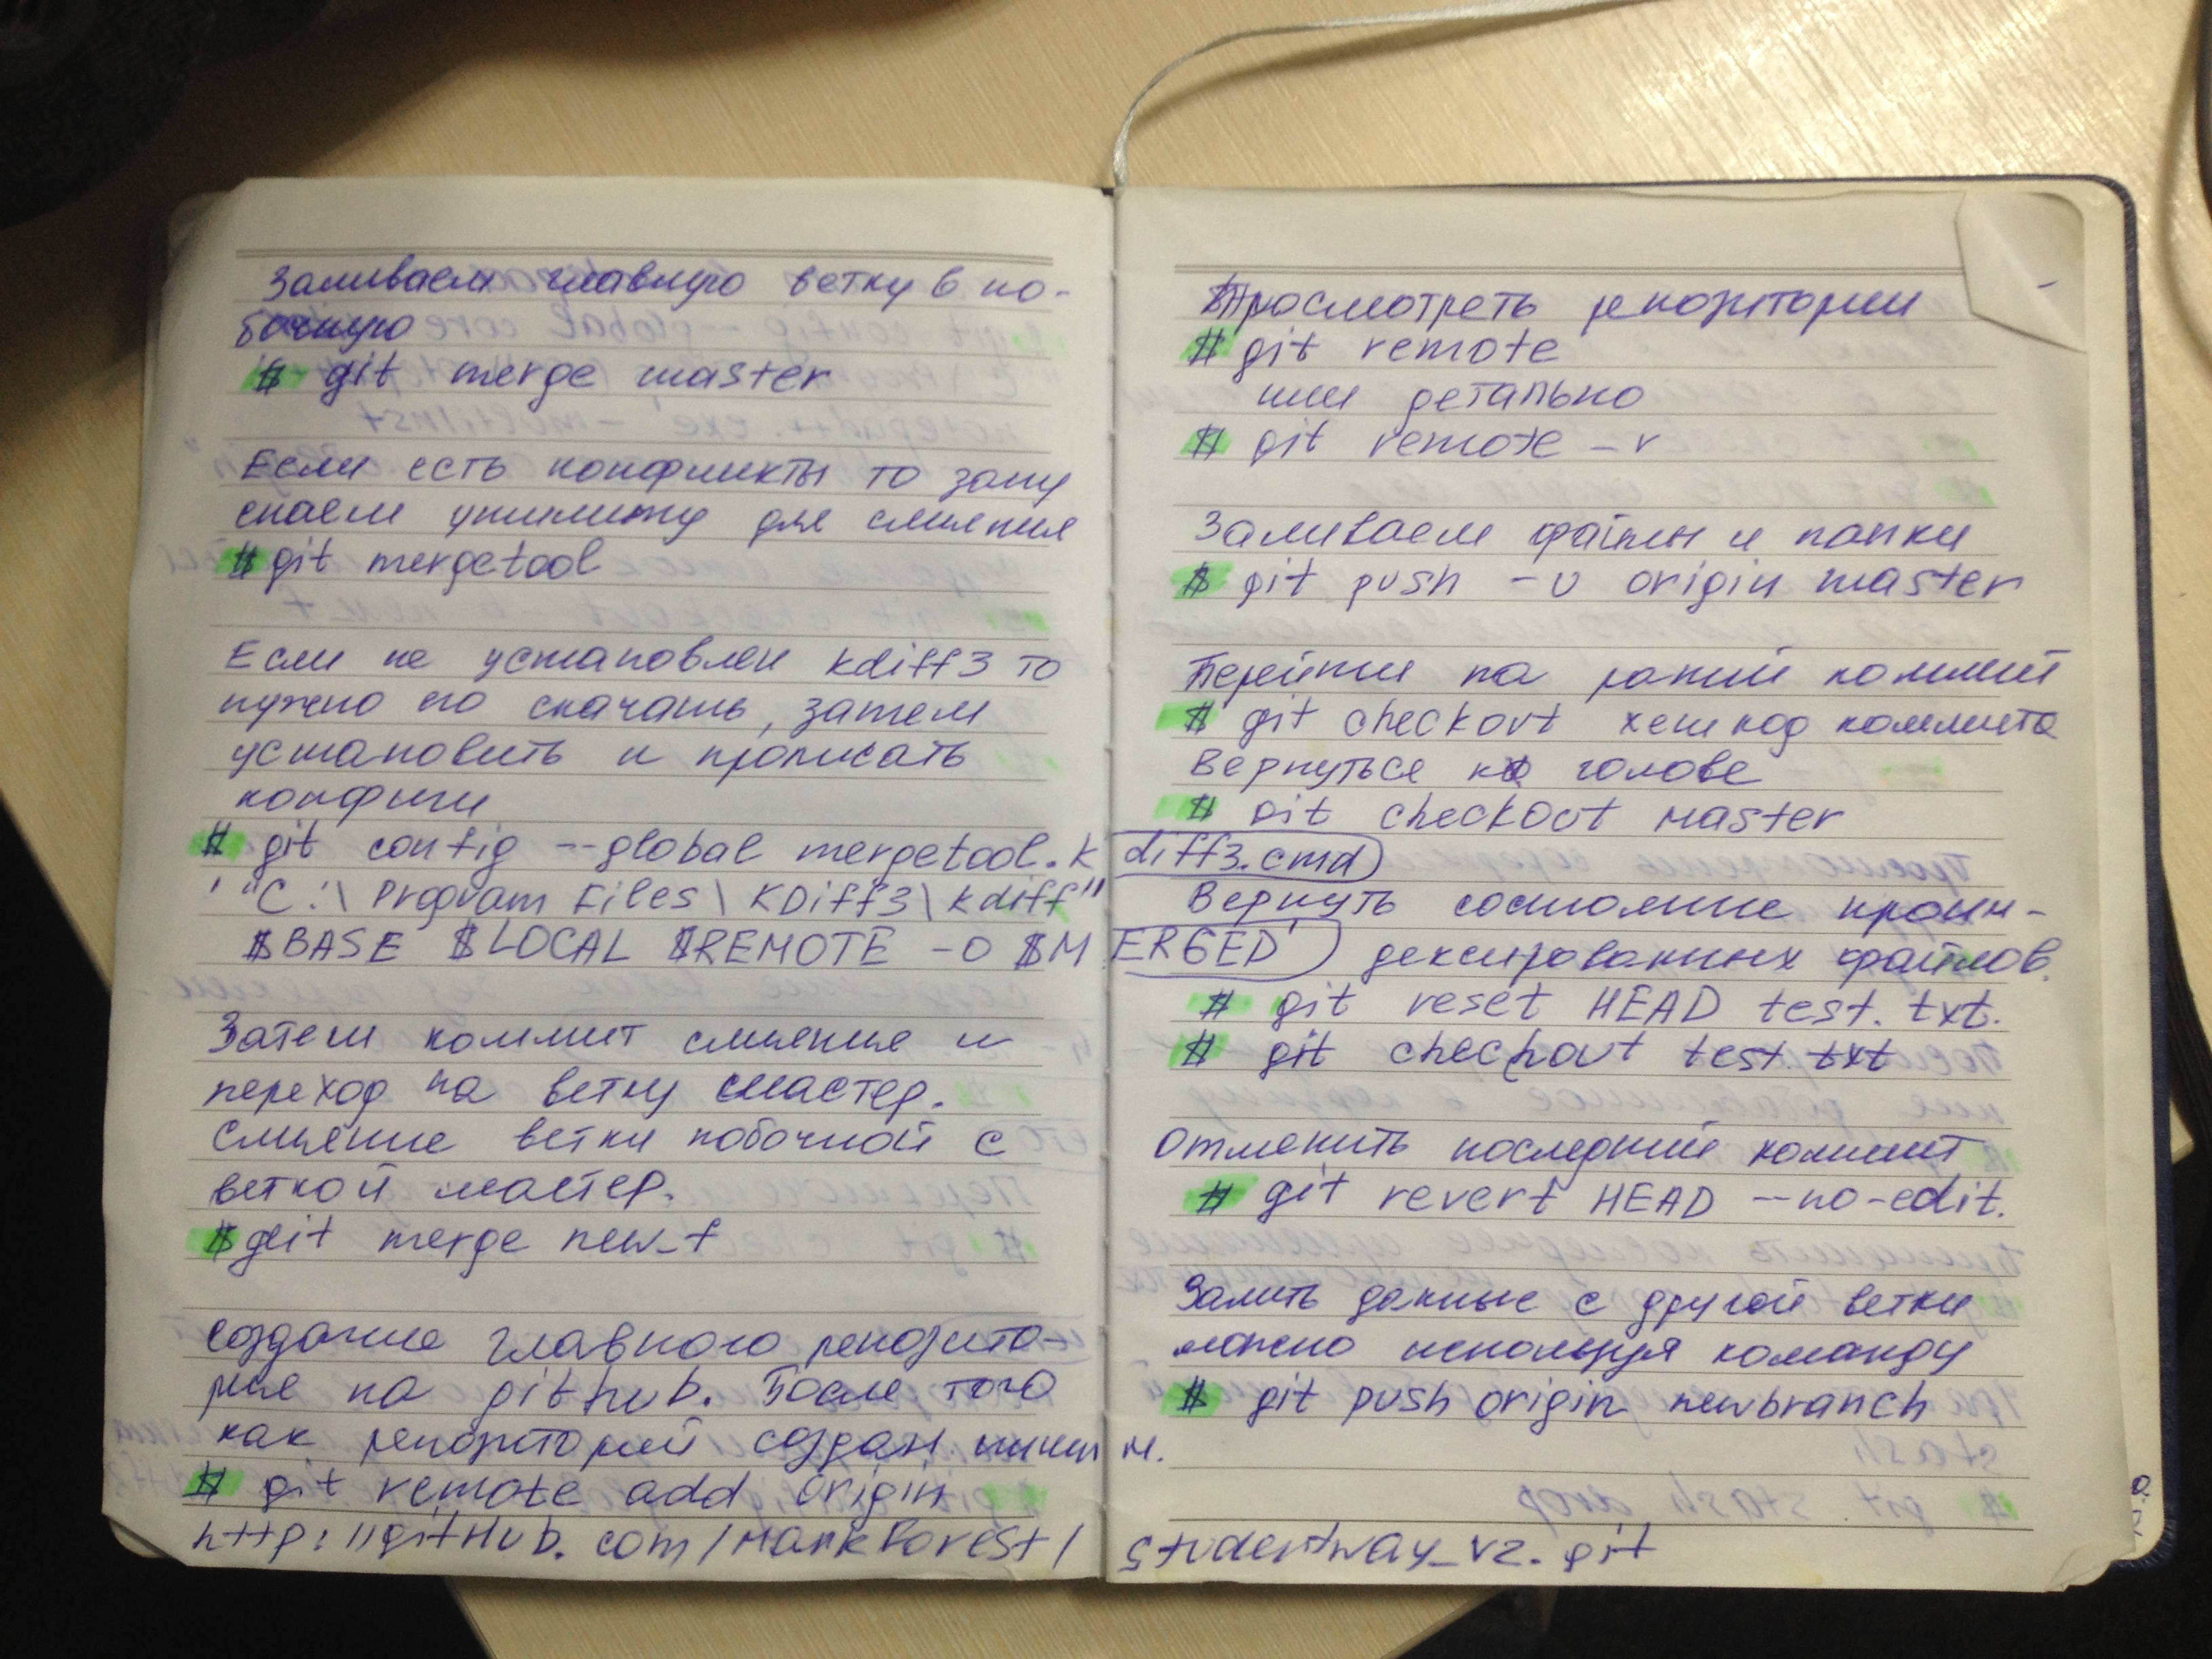 Заливаем головную ветку в по-
бочную
# git merge master
Если есть конфликты то запу
скаем утилиту для слияние
# git mergetool
Если не установлен kdiff3 то
нужно его скачать, затем
установить и прописать
конфиги
# git config --global mergetool.k
diff3.cmd
'"C:\Program Files\KDiff3\kdiff"
$BASE $LOCAL $REMOTE -o $M
ERGED'
Затем коммит слияние и
переход на ветку мастер.
Слияние ветки побочной с
веткой мастер.
# git merge new_t
Создание главного репозито-
рие на github. После того
как репозиторий создан. пишим.
# git remote add origin
http://github.com/MarkForest/
studentway_v2.git
Просмотреть репозитории
# git remote
или детально
# git remote -v
Заливаем файлы и папки
# git push -u origin master
Перейти на раний коммит
# git checkout хеш код коммита
Вернуться к голове
# git checkout master
Вернуть состояние проин-
дексированных файлов.
# git reset HEAD test.txt.
# git checkout test.txt
Отменить последний коммит
# git revert HEAD --no-edit.
Залить данные с другой ветки
можно используя команду
# git push origin newbranch